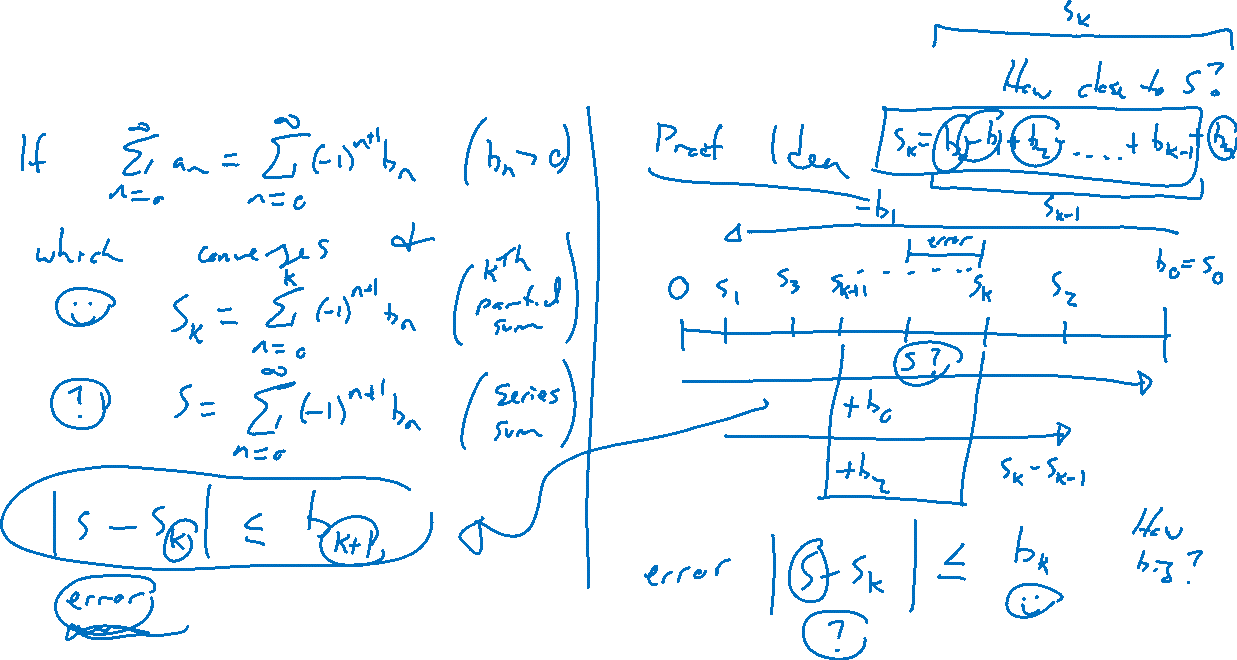 If ∑_{n=0}^{∞} a_n = ∑_{n=0}^{∞} (-1)^{n+1} b_n (b_n > 0)
which converges &
S_k = ∑_{n=0}^{k} (-1)^{n+1} b_n (kTh partial sum)
? S = ∑_{n=0}^{∞} (-1)^{n+1} b_n (series sum)
|S - S_k| ≤ b_{k+1}
error
S_k
How close to S?
Proof Idea S_k = b_0 - b_1 + b_2 - ..... + b_{k-1} - b_k
S_{k-1}
-b_1
error
b_0 = S_0
0 S_1 S_3 S_{k+1} ........ S_k S_2
S?
+b_0
+b_2 S_k - S_{k-1}
error |S - S_k| ≤ b_k How big?
?